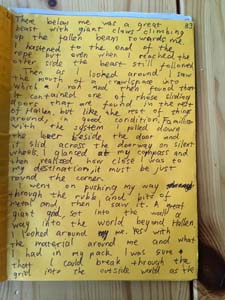 83
There below me was a great
beast with giant claws climbing
the fallen beam towards me.
I hastened to the end of the
rope but even when I reached the
other side the beast still followed
Then as I looked around I saw
the mouth of a crawlspace into
which I ran and then found that
it contained one of those sliding
doors that are found in the rest
of Hallen, but like the rest of things
around, in good condition. Familiar
with the system I pulled down
the lever beside the door and
it slid across the doorway on silent
wheels. I glanced at my compass and
then realized how close I was to
my destination, it must be just
round the corner.
I went on pushing my way
through the rubble and bits of
metal and then I saw it. A great
giant grid, set into the wall a
way into the world beyond Hallen
I looked around me. Yes with
the material around me and what
I had in my pack, I was sure
that I could break through the
grid into the outside world as the